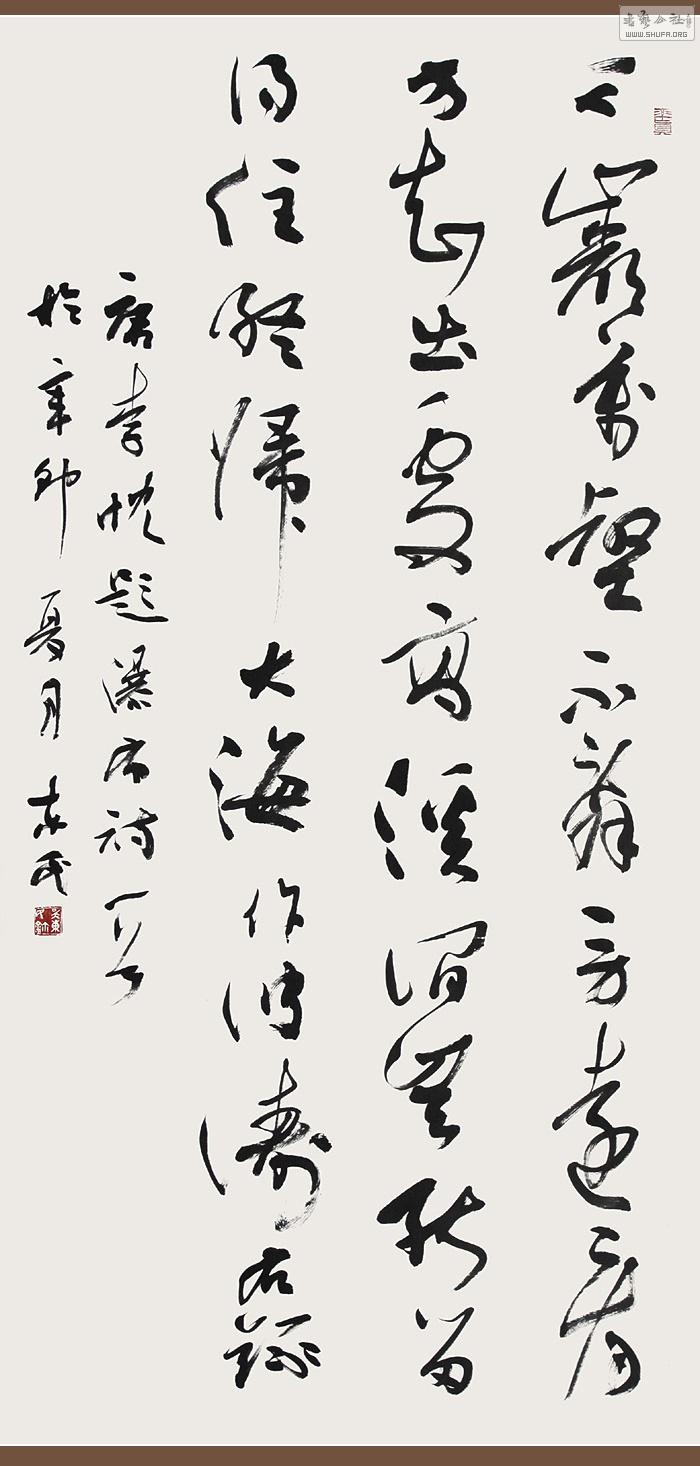 千巖萬壑不辭勞遠看
方知出處高溪澗豈能留
得住終歸大海作波濤右錄
唐李忱題瀑布詩一首
於辛卯夏月東民
书艺公社
WWW.SHUFA.ORG